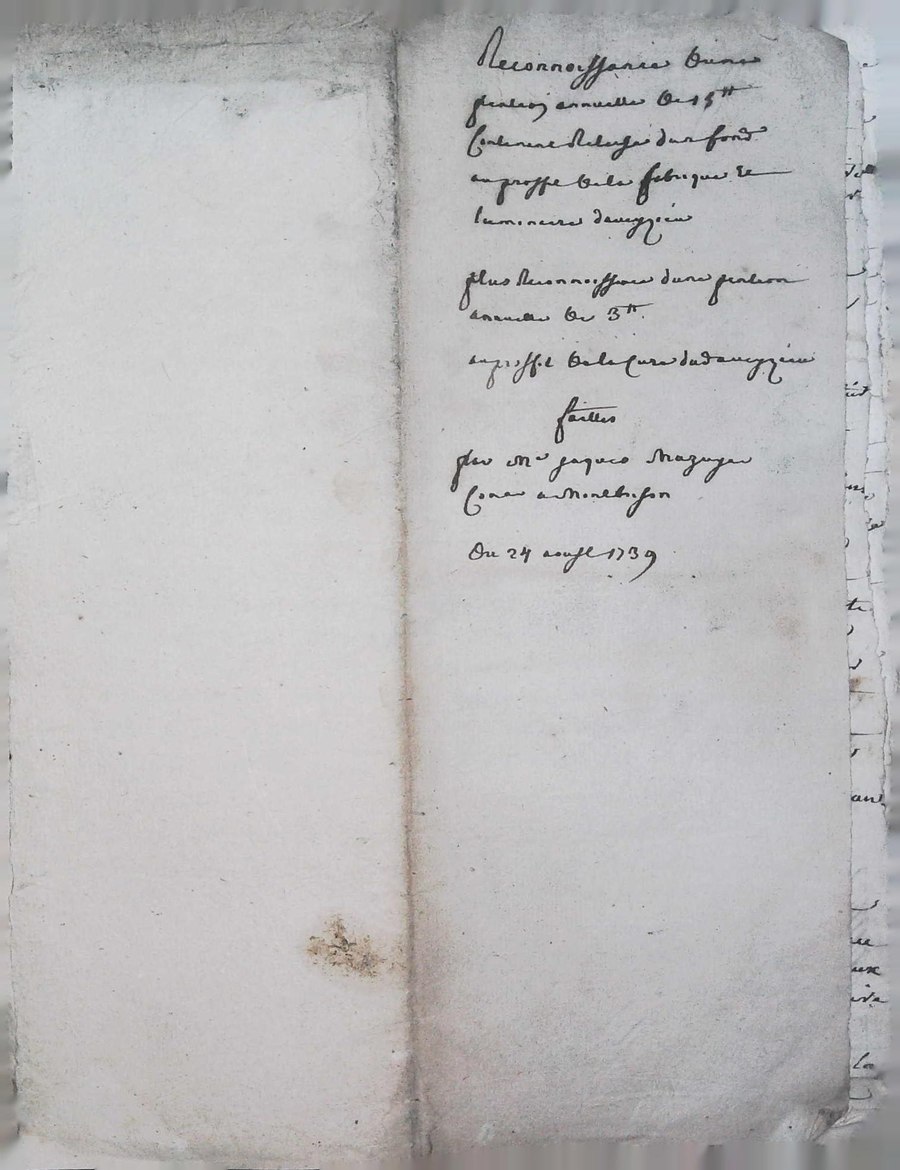 Reconnoissance dune
pention annuelle de 15 tt
Contenant Relache dun fond
au proffit de la fabrique Et
luminaire daveyzieu
plus Reconnoissance dune pention
annuelle de 3 tt
au proffit de la Cure dud aveyzieu
faittes
par Me jaques Mazuyer
a Montbrison
Du 24 aoust 1739